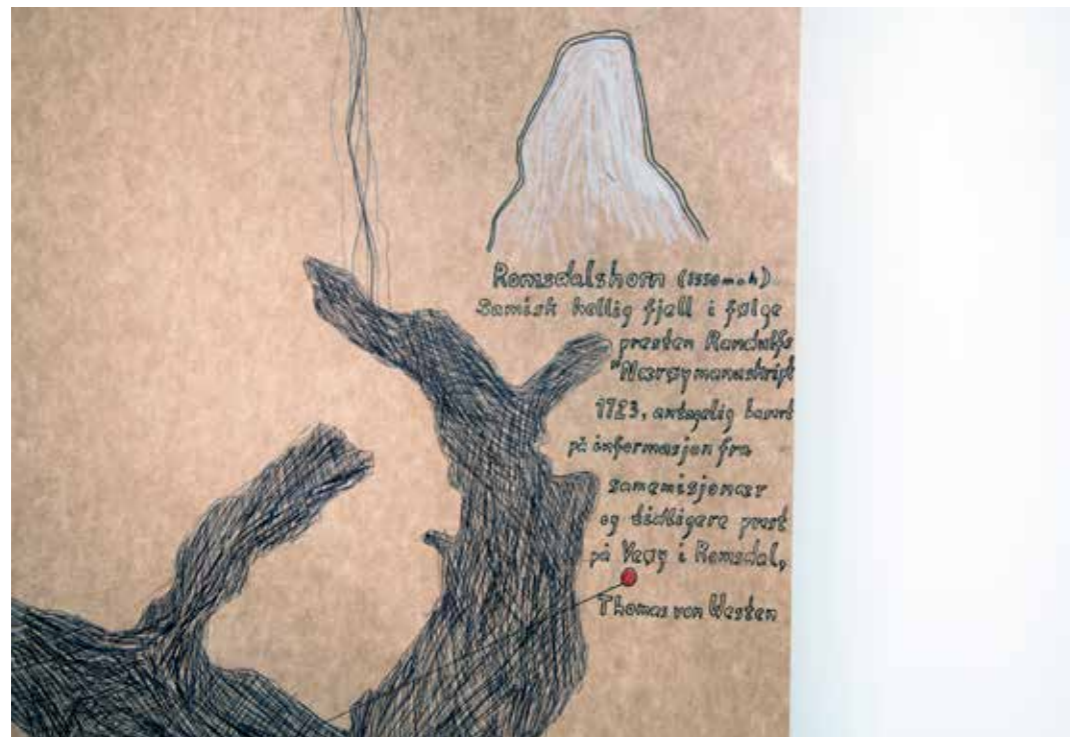 Romsdalshorn (1550 m.o.h)
Samisk hellig fjell i følge
presten Randulfs
"Nærøymanuskript
1723, antagelig basert
på informasjon fra
samemisjonær
og tidligere prest
på Veøy i Romsdal,
Thomas von Westen